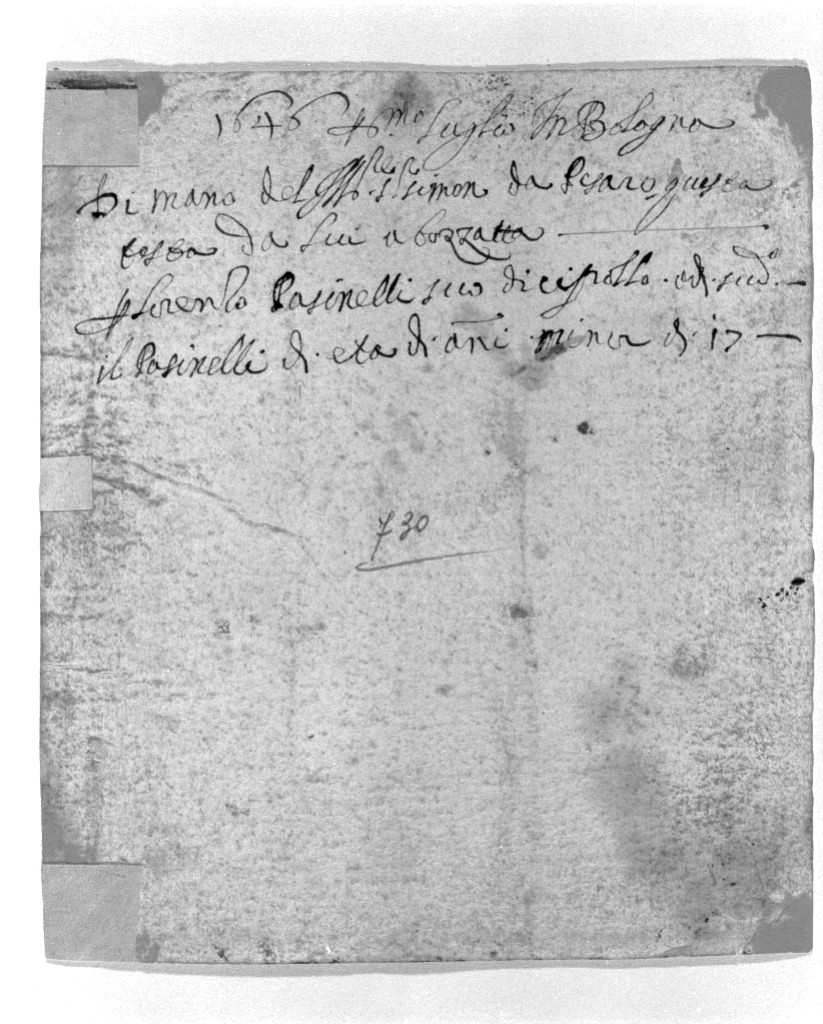 1646 pmo Luglio In Bologna
Di mano del Sigr simon da Pesaro questa
testa da lui abozzatta
Lorenzo Pasinelli suo dicipollo
il Pasinelli di eta di ani minor di 17
730